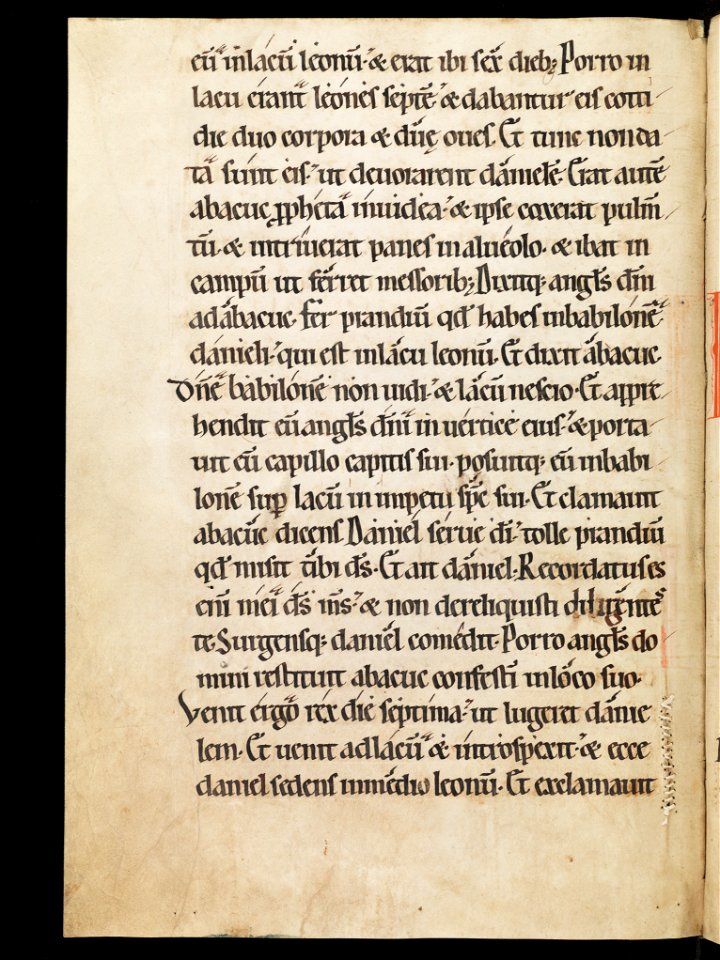 eū inlacū leonū· & erat ibi sex dieb; Porro in
lacu erant leones septē· & dabantur eis coti
die duo corpora & duę oues. Et tunc non da
ta sunt eis· ut deuorarent danielē. Erat autē
abacuc ꝓphẽta in iudea· & ipse coxerat pulm̄
tū· & intriuerat panes in alueolo· & ibat in
campū ut ferret messorib; Dixitq; angl̄s dn̄i
ad abacuc· fer prandiū qd̄ habes in babilonē
danieli· qui est in lacu leonū. Et dixit abacuc·
Dn̄e babilonē non uidi· & lacū nescio· Et appre
hendit eū angl̄s dn̄i in uertice eius· & porta
uit eū capillo capitis sui· posuitq; eū in babi
lonē sup̄ lacū in impetu sp̄c sui· Et clamauit
abacuc dicens Daniel serue dī· tolle prandiū
qd̄ misit tibi ds̄· Et ait daniel· Recordatus es
enī mei ds̄ m̄s· & non dereliquisti diligentes
te· Surgensq; daniel comedit· Porro angl̄s do
mini restituit abacuc confestī in loco suo·
Venit ergo rex die septima· ut lugeret danie
lem· Et uenit ad lacū & introspexit· & ecce
daniel sedens in medio leonū· Et exclamauit